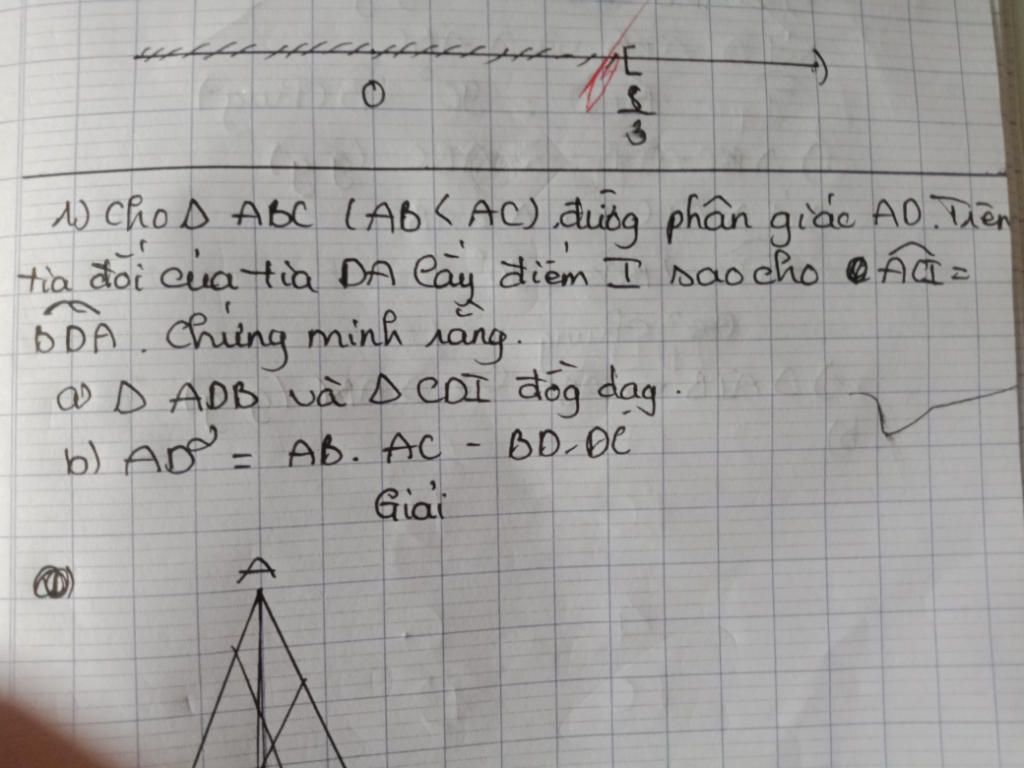 O
8/3
1) Cho Δ ABC (AB < AC), đường phân giác AD. Trên
tia đối của tia DA lấy điểm I sao cho ACI =
BDA. Chứng minh rằng.
a) Δ ADB và Δ CDI đồg dạg.
b) AD² = AB. AC - BD.DC
Giải
A